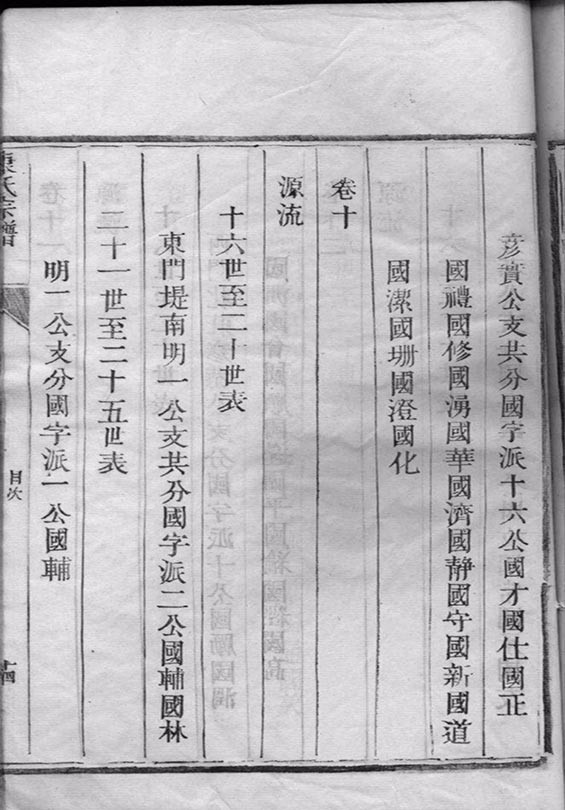 彦實公支共分國字派十六公國才國仕國正
國禮國修國湧國華國濟國靜國守國新國道
國潔國珊國澄國化
卷十
源流
十六世至二十世表
東門堤南明一公支共分國字派二公國輔國林
二十一世至二十五世表
明一公支分國字派一公國輔
康氏宗譜
目次